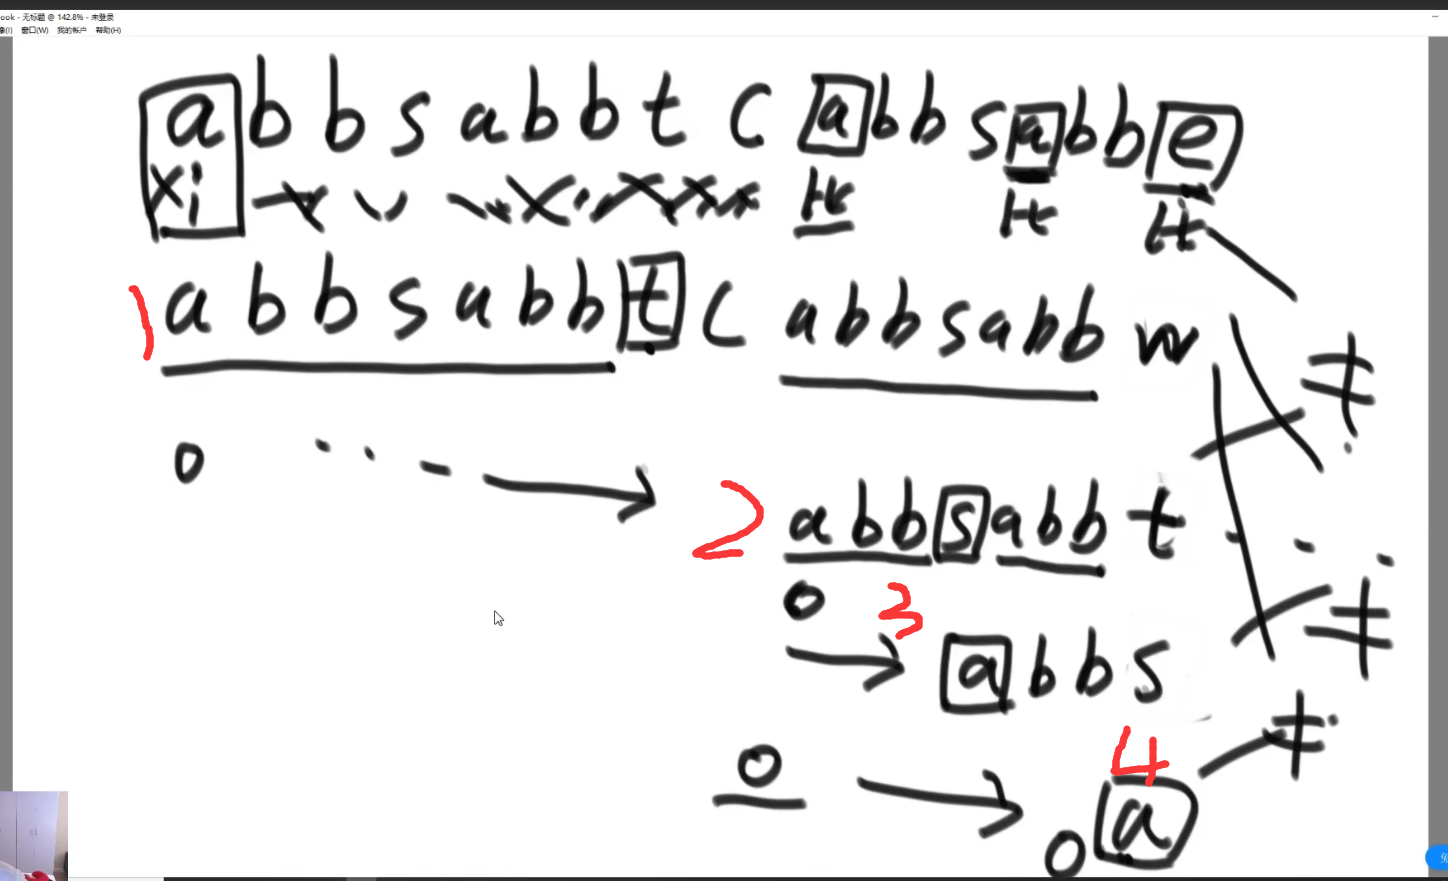 ook - 无标题 @ 142.8% - 未登录
像(I) 窗口(W) 我的帐户 帮助(H)
a b b s a b b t c a b b s a b b e
xi
1 a b b s a b b t c a b b s a b b w
≠
0
2 a b b s a b b t
0 3
≠
a b b s
≠
0 4
0 a